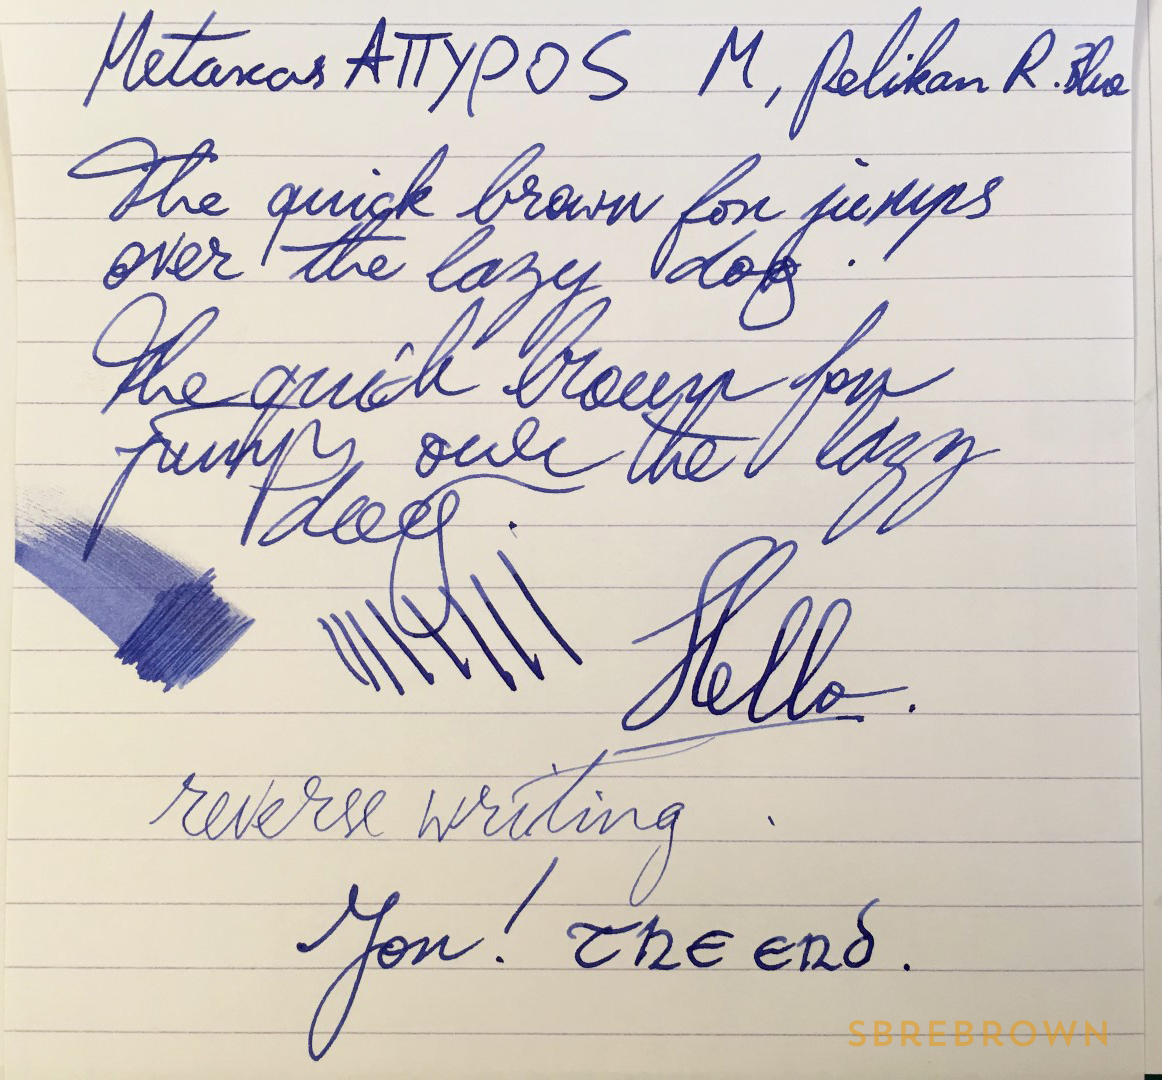 Metaxas ΑΠΥΡΟS M, Pelikan R. Blue
The quick brown fox jumps
over the lazy dog.
The quick brown fox
jumps over the lazy
dog.
Hello.
reverse writing.
You! The end.
SBREBROWN